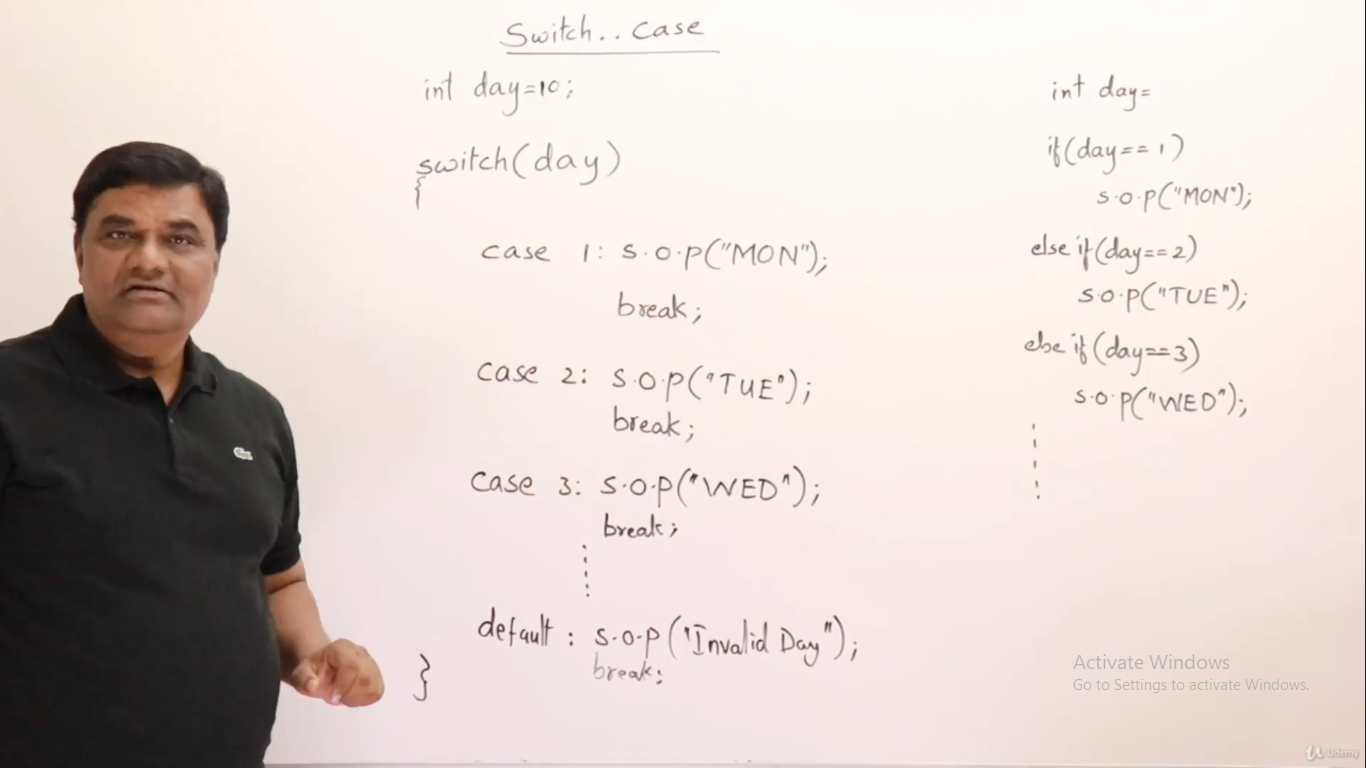 Switch.. Case
int day=10;
switch(day)
{
case 1: s.o.p("MON");
break;
case 2: s.o.p("TUE");
break;
case 3: s.o.p("WED");
break;
default: s.o.p("Invalid Day");
break;
}
int day=
if(day==1)
s.o.p("MON");
else if(day==2)
s.o.p("TUE");
else if(day==3)
s.o.p("WED");
Activate Windows
Go to Settings to activate Windows.
Udemy